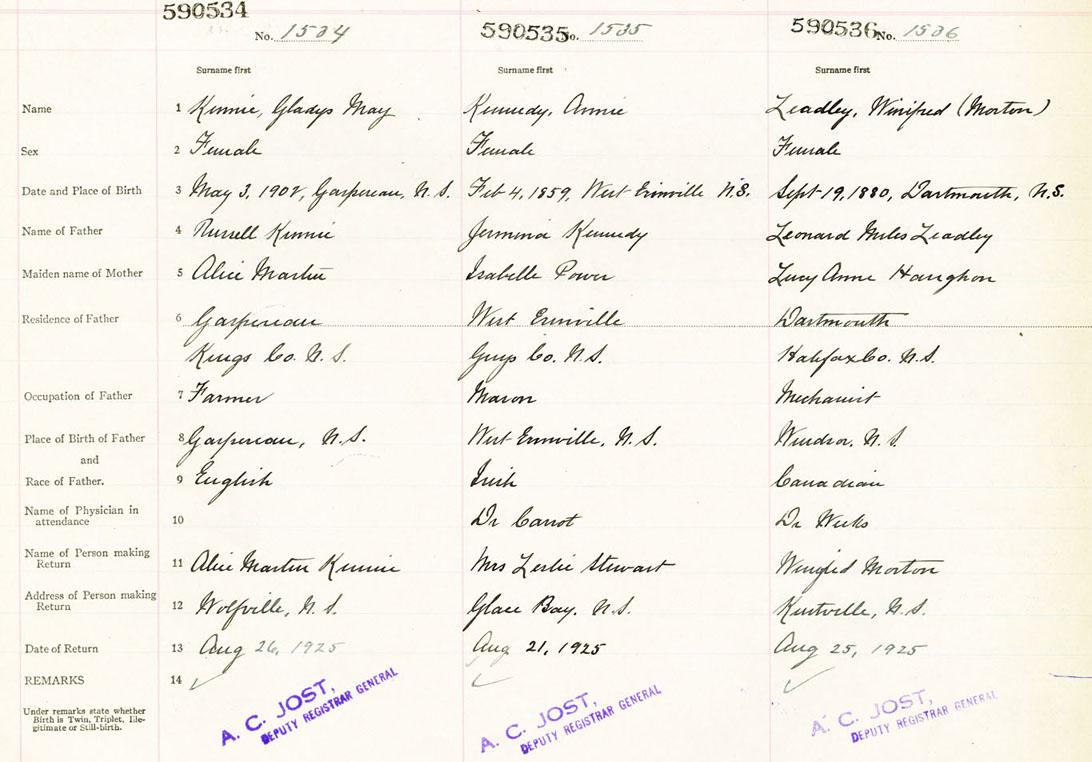 590534 590535 590536
No. 1534 No. 1535 No. 1536
Surname first Surname first Surname first
Name 1 Kinnie, Gladys May Kennedy, Annie Leadley, Winifred (Morton)
Sex 2 Female Female Female
Date and Place of Birth 3 May 3, 1902, Gaspereau, N.S. Feb 4, 1859, West Erinville N.S. Sept 19, 1880, Dartmouth, N.S.
Name of Father 4 Russell Kinnie Kennedy Leonard Miles Leadley
Maiden name of Mother 5 Alice Martin Isabelle Power Lucy Anne
Residence of Father 6 Gaspereau West Erinville Dartmouth
Kings Co. N.S. Guys Co. N.S. Halifax Co. N.S.
Occupation of Father 7 Farmer Mason Mechanist
Place of Birth of Father 8 Gaspereau, N.S. West Erinville, N.S. Windsor, N.S.
and
Race of Father. 9 English Irish Canadian
Name of Physician in
attendance 10 Dr Dr Weeks
Name of Person making
Return 11 Alice Martin Kinnie Mrs Leslie Stewart Winifred Morton
Address of Person making
Return 12 Wolfville, N.S. Glace Bay, N.S. Kentville, N.S.
Date of Return 13 Aug 26, 1925 Aug 21, 1925 Aug 25, 1925
REMARKS 14
Under remarks state whether
Birth is Twin, Triplet, Ille-
gitimate or Still-birth.
A. C. JOST, A. C. JOST, A. C. JOST,
DEPUTY REGISTRAR GENERAL DEPUTY REGISTRAR GENERAL DEPUTY REGISTRAR GENERAL